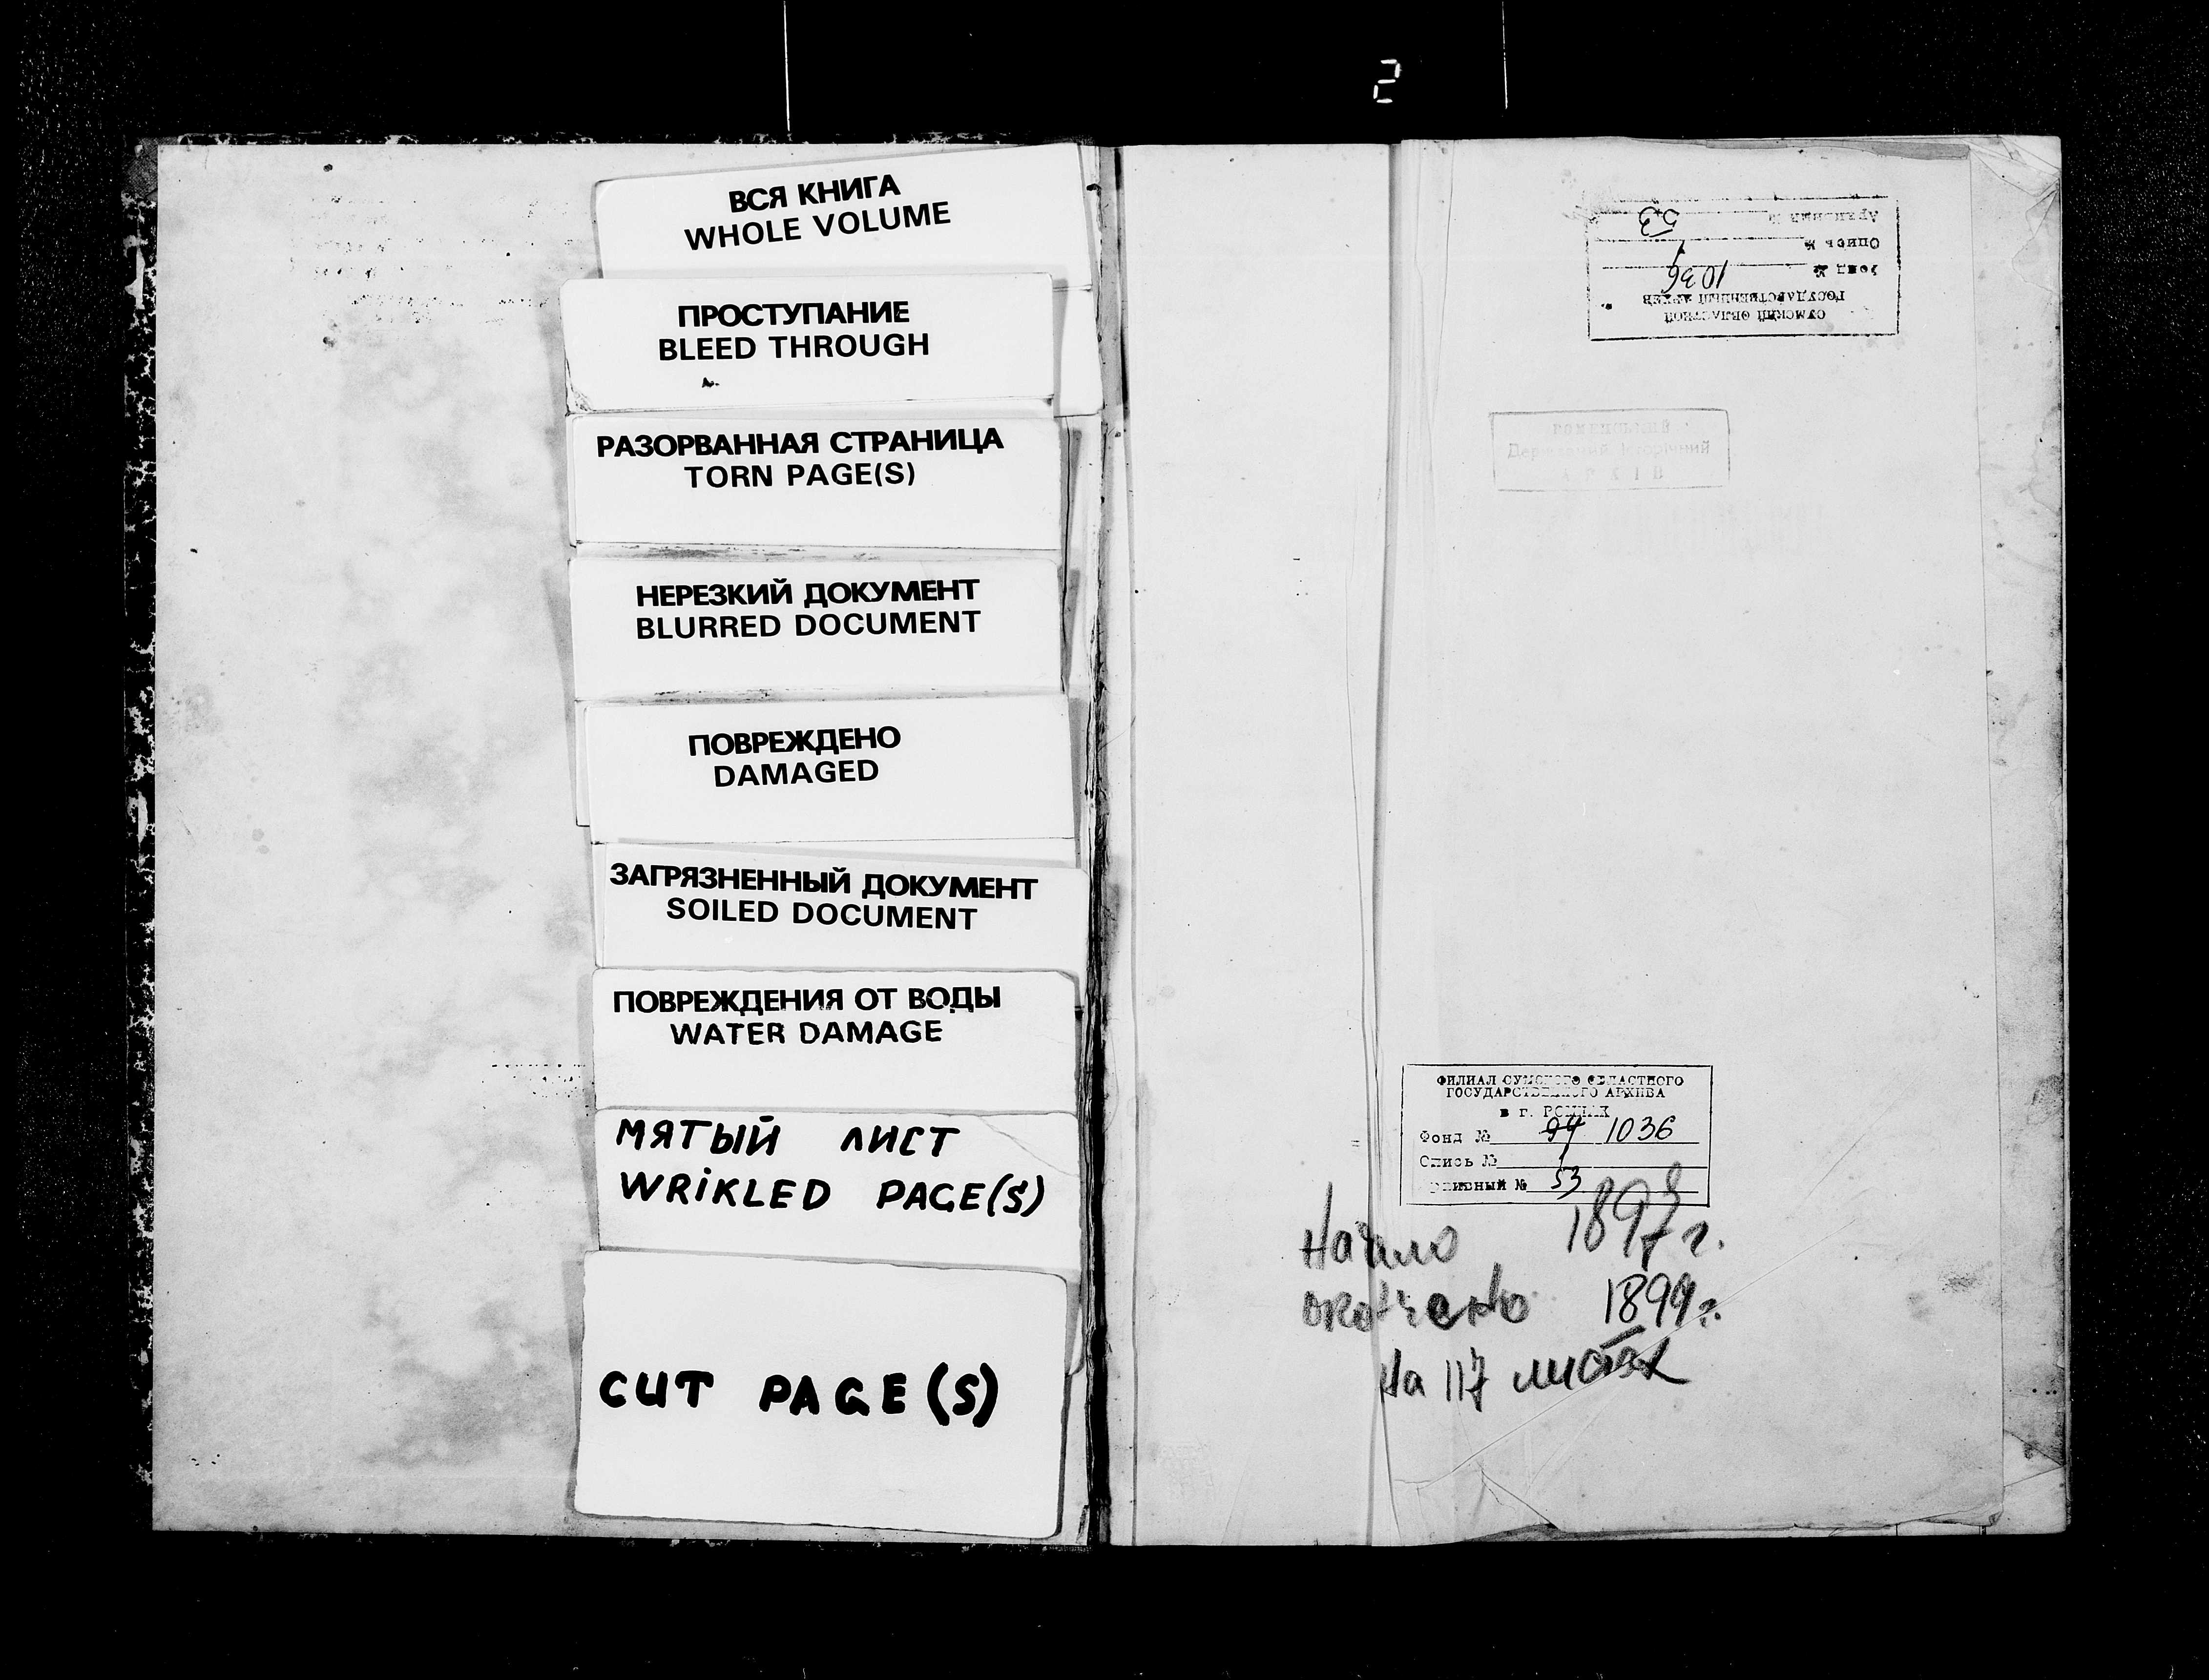 2
ВСЯ КНИГА
WHOLE VOLUME
ПРОСТУПАНИЕ
BLEED THROUGH
РАЗОРВАННАЯ СТРАНИЦА
TORN PAGE(S)
НЕРЕЗКИЙ ДОКУМЕНТ
BLURRED DOCUMENT
ПОВРЕЖДЕНО
DAMAGED
ЗАГРЯЗНЕННЫЙ ДОКУМЕНТ
SOILED DOCUMENT
ПОВРЕЖДЕНИЯ ОТ ВОДЫ
WATER DAMAGE
МЯТЫЙ ЛИСТ
WRIKLED PAGE(S)
CUT PAGE(S)
СУМСКИЙ ОБЛАСТНОЙ
ГОСУДАРСТВЕННЫЙ АРХИВ
Фонд № 1036
Опись № 1
Архивный № 53
РОМЕНСЬКИЙ
Державний Історичний
АРХІВ
ФИЛИАЛ СУМСКОГО ОБЛАСТНОГО
ГОСУДАРСТВЕННОГО АРХИВА
в г. РОМНАХ
Фонд № 94 1036
Опись № 1
Архивный № 53
Начато 1897 г.
окончено 1899 г.
На 117 листах